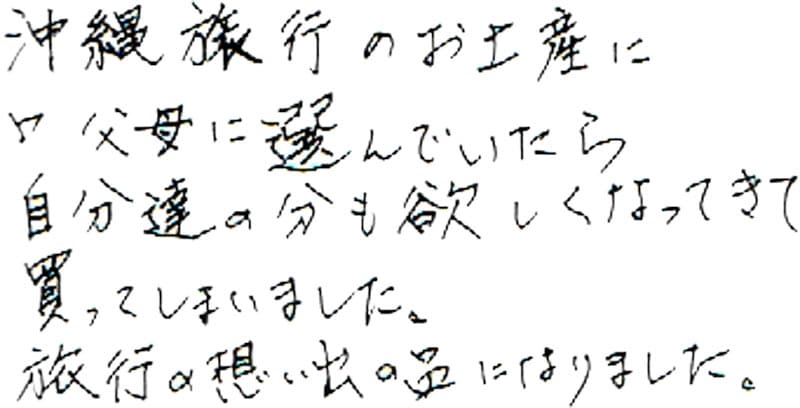 沖縄旅行のお土産に
父母に選んでいたら
自分達の分も欲しくなってきて
買ってしまいました。
旅行の想い出の品になりました。